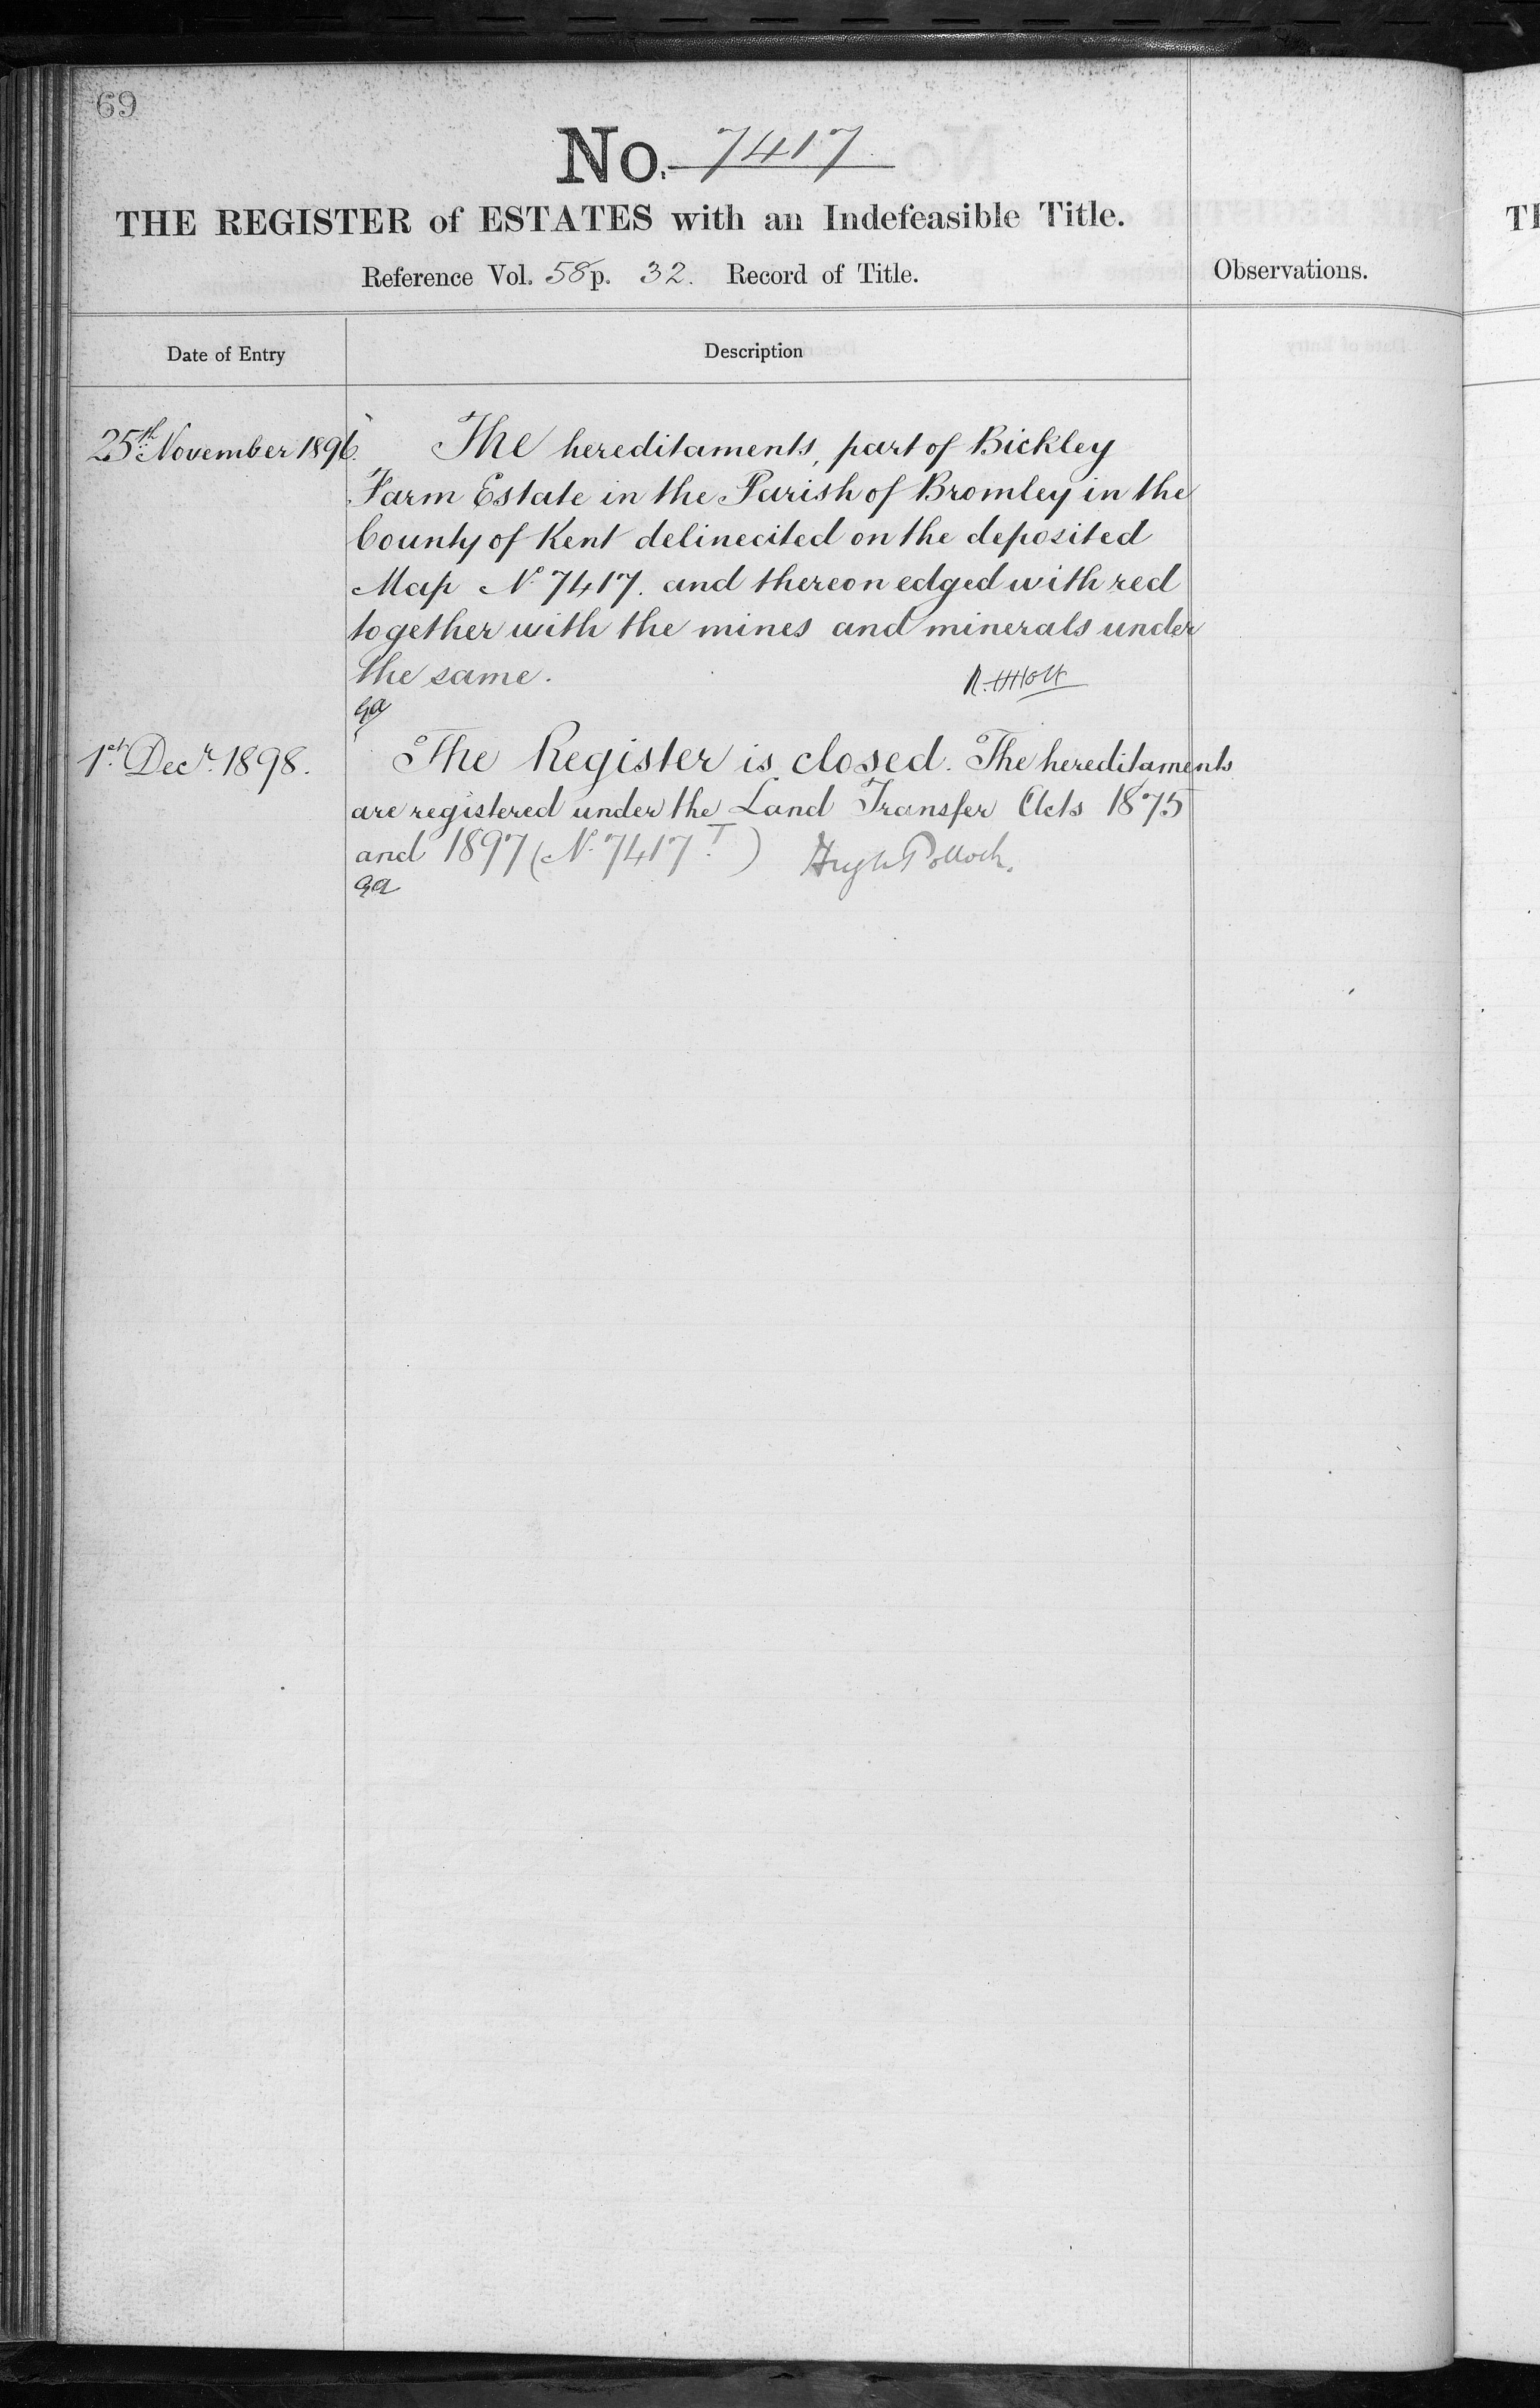 69
No. 7417
THE REGISTER of ESTATES with an Indefeasible Title.
Reference Vol. 58 p. 32. Record of Title.
Observations.
Date of Entry
Description
25th November 1896.
The hereditaments, part of Bickley
Farm Estate in the Parish of Bromley in the
County of Kent delineated on the deposited
Map No 7417. and thereon edged with red
together with the mines and minerals under
the same.
1st Decr. 1898.
The Register is closed. The hereditaments
are registered under the Land Transfer Acts 1875
and 1897 (No 7417 T) Hugh Pollock.